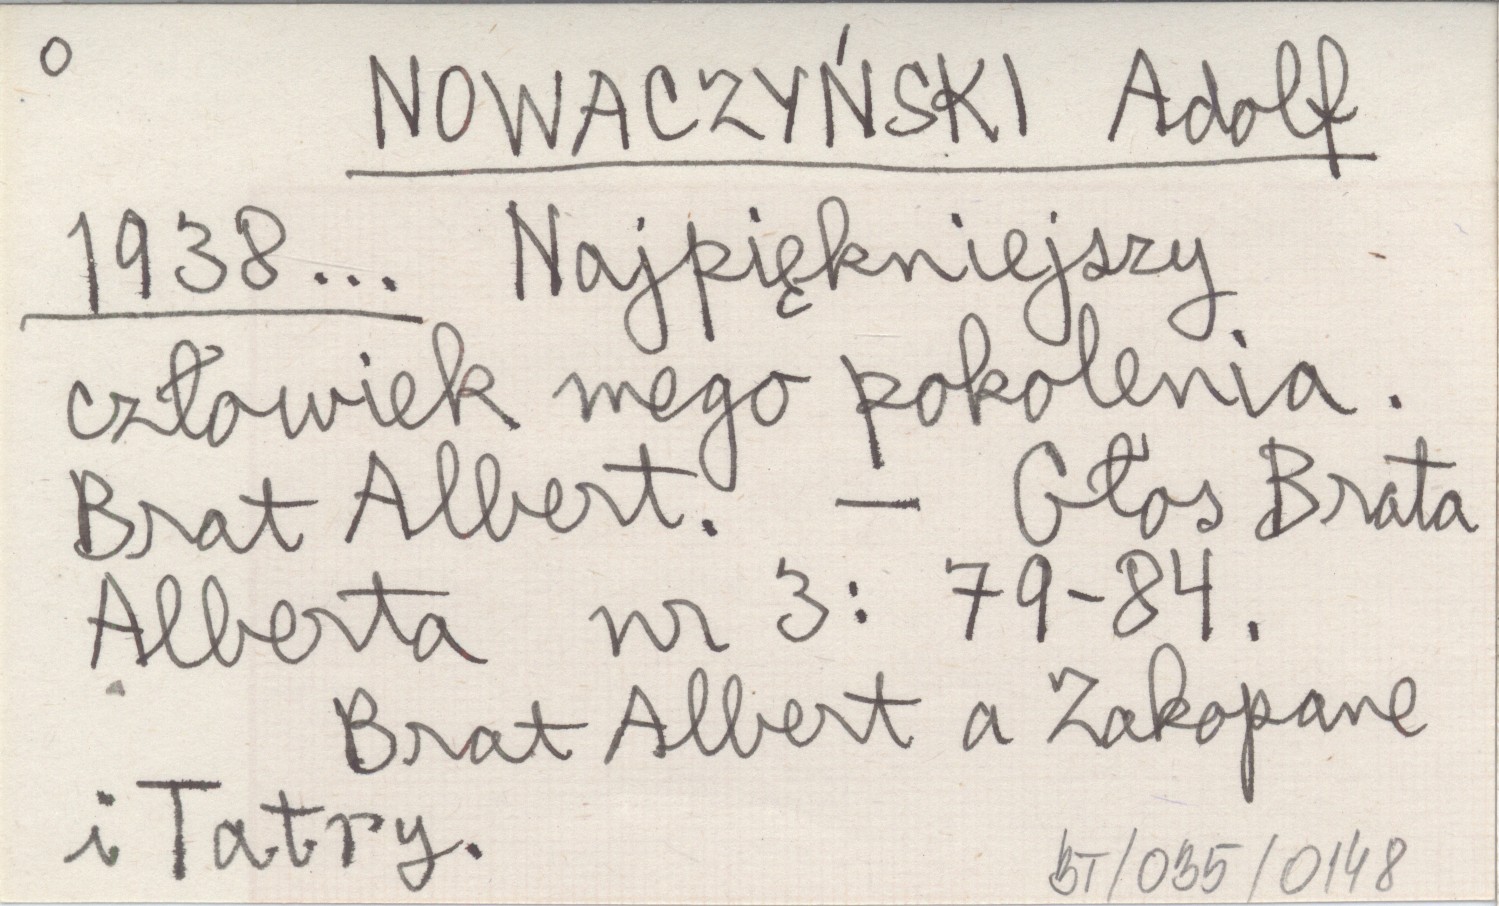 o
NOWACZYŃSKI Adolf
1938... Najpiękniejszy
człowiek mego pokolenia.
Brat Albert. — Głos Brata
Alberta nr 3: 79-84.
Brat Albert a Zakopane
i Tatry.
BT/035/0148